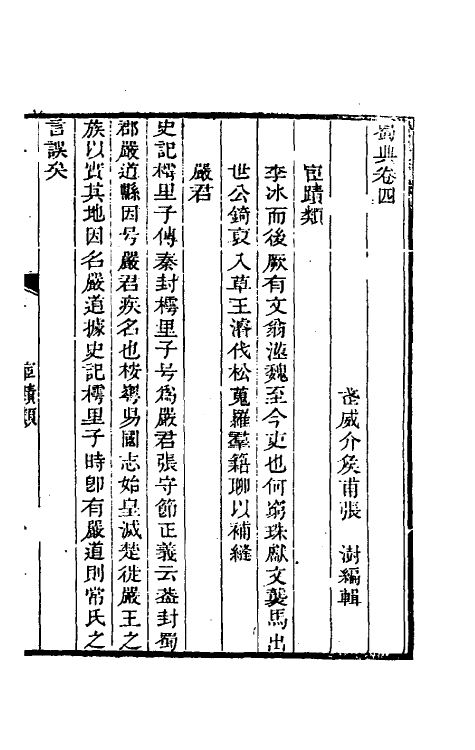 蜀典卷四
武威介侯甫張 澍編輯
宦蹟類
李冰而後厥有文翁滋魏至今吏也何窮珠獻文龔馬出
世公錡哀入草王濬伐松蒐羅羣籍聊以補縫
嚴君
史記樗里子傳秦封樗里子号為嚴君張守節正義云葢封蜀
郡嚴道縣因号嚴君疾名也桉華昜國志始皇滅楚徙嚴王之
族以實其地因名嚴道據史記樗里子時卽有嚴道則常氏之
言誤矣
宦蹟類